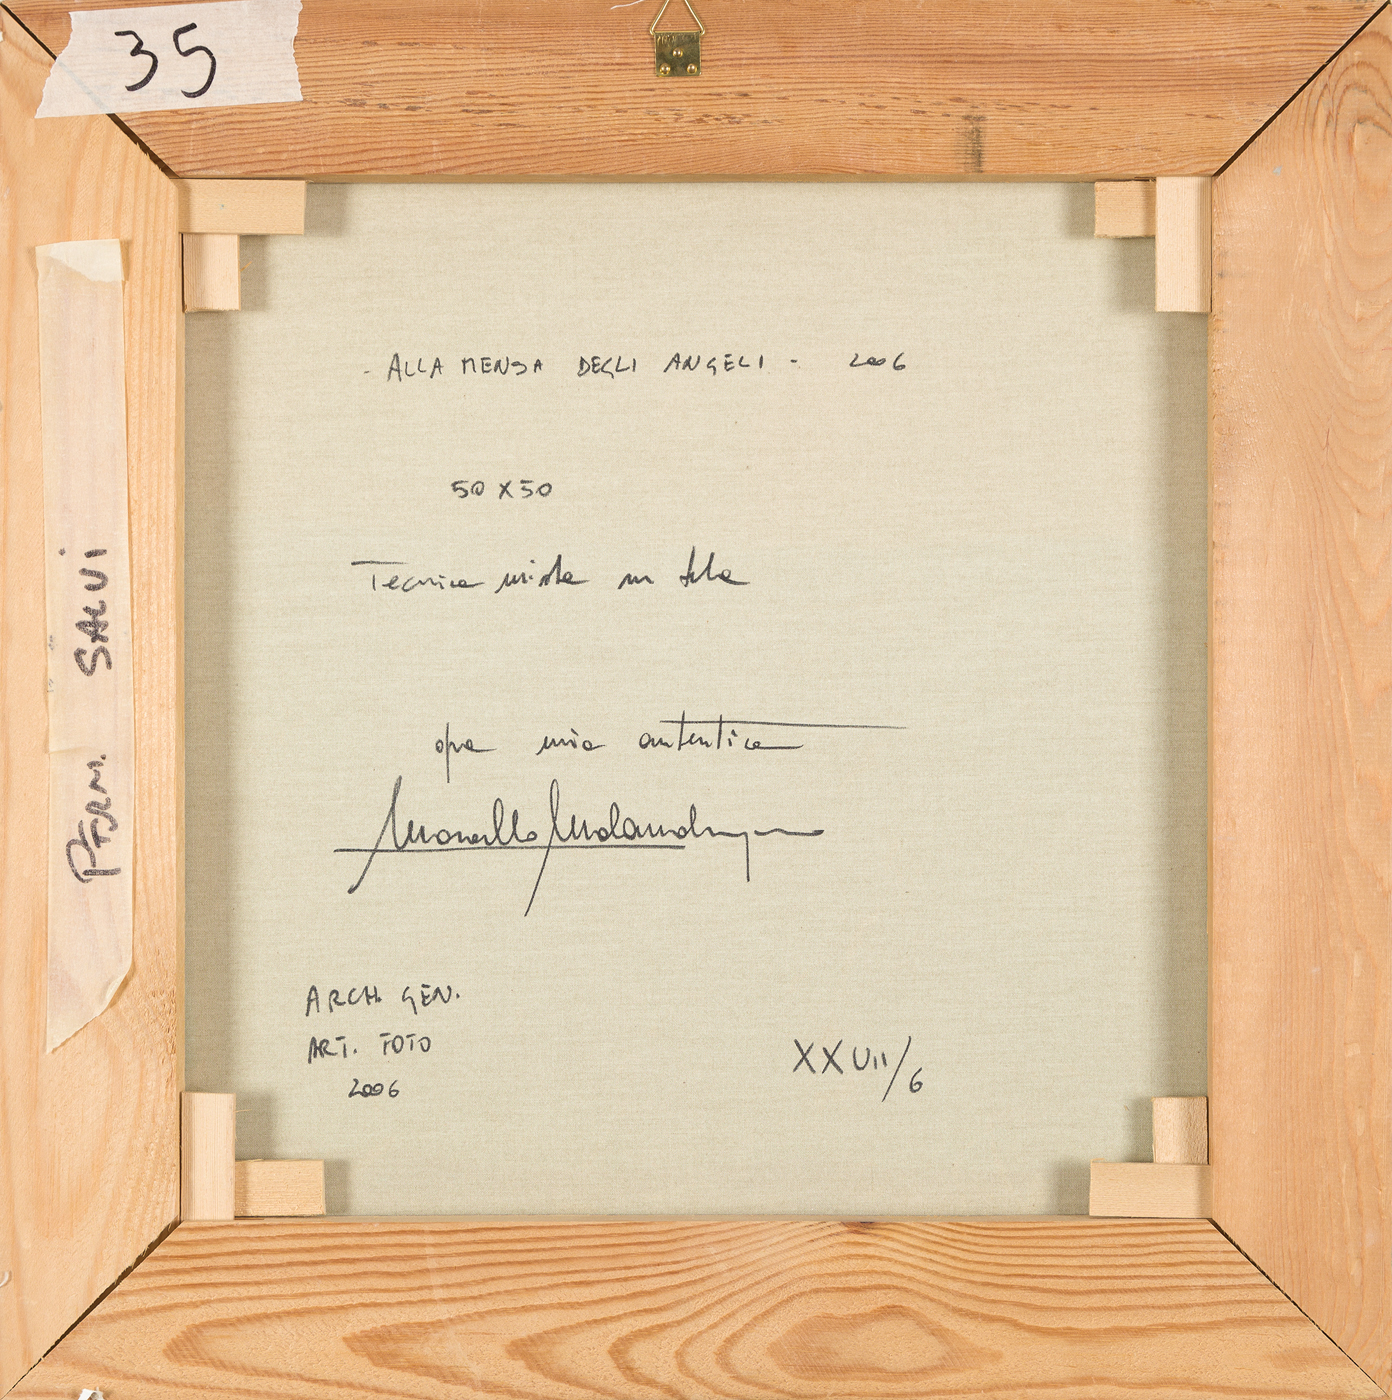 35
- ALLA MENSA DEGLI ANGELI - 2006
50 X 50
Tecnica mista su tela
opera mia autentica
ARCH. GEN.
ART. FOTO
2006
XXVII/6
SALVI